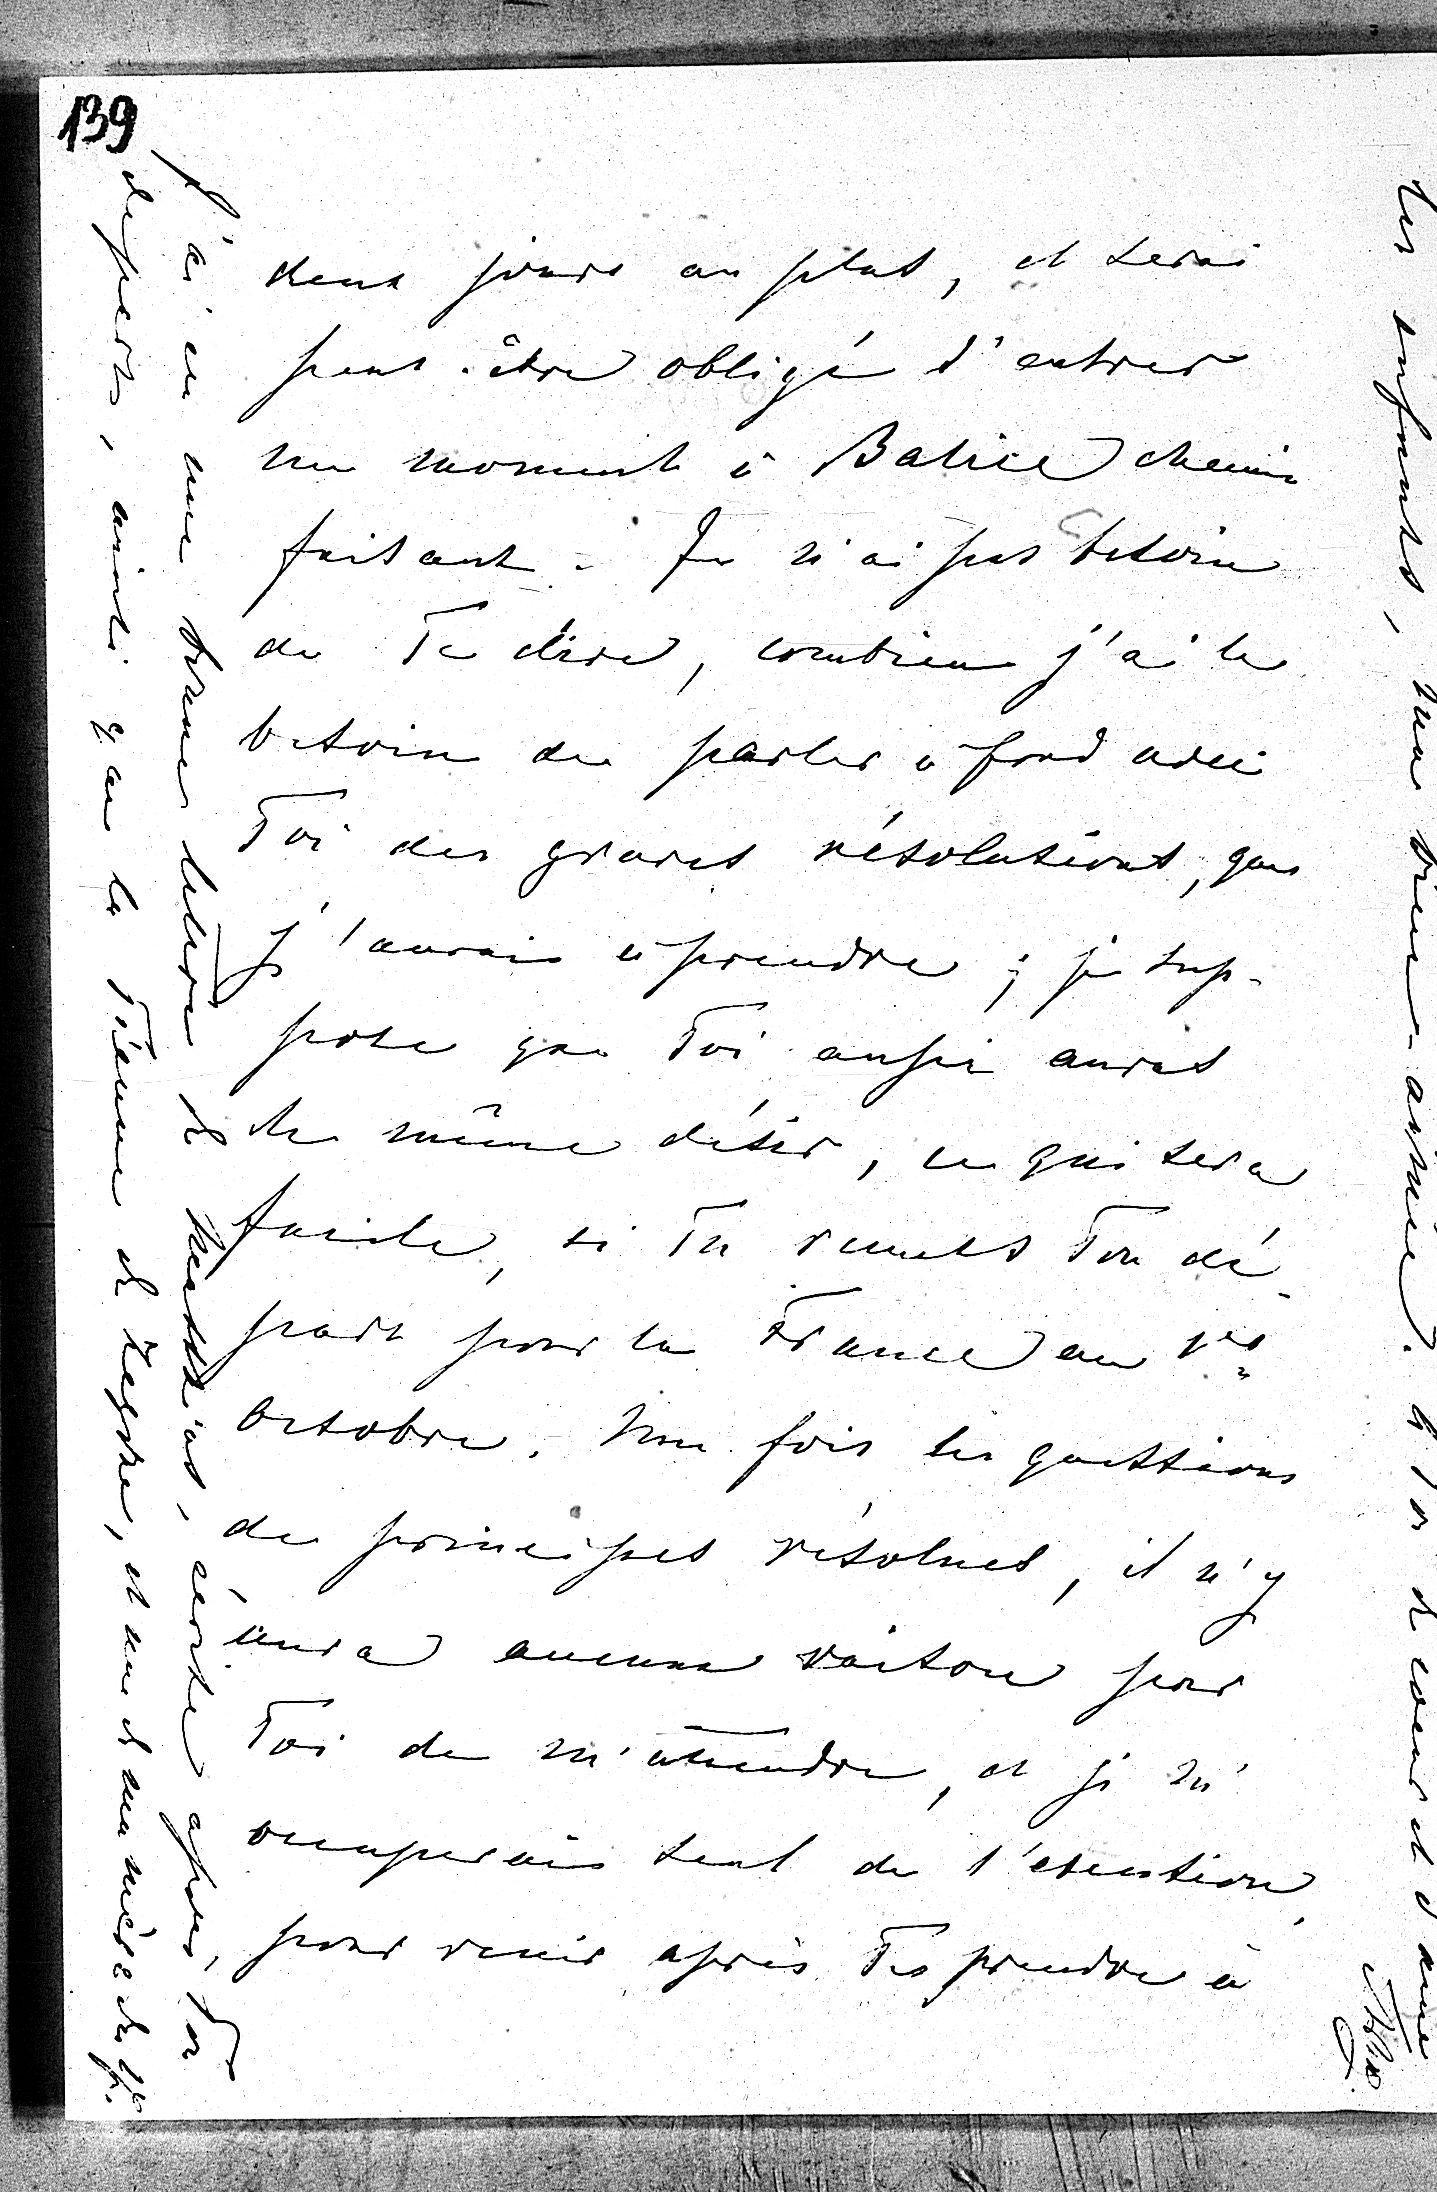 139
deux jours au plus, et serai
peut-être obligé d'entrer
un moment à Balice chemin
faisant. Je n'ai pas besoin
de Te dire, combien j'ai le
besoin de parler à fond avec
Toi des graves résolutions, que
j'aurais à prendre ; je sup-
pose que Toi aussi auras
le même désir, ce qui sera
facile, si Tu remets Ton dé-
part pour la France au 1er
Octobre. Une fois les questions
de principes résolues, il n'y
aura aucune raison pour
Toi de m'attendre, et je m'
occuperais seul de l'exécution,
pour venir après Te prendre à
J'ai eu une bonne lettre de, écrite après Ton
départ, ainsi que la Tienne de, et une de ma mère du
les enfants, ma bien-aimée. à Toi de coeur et d'âme